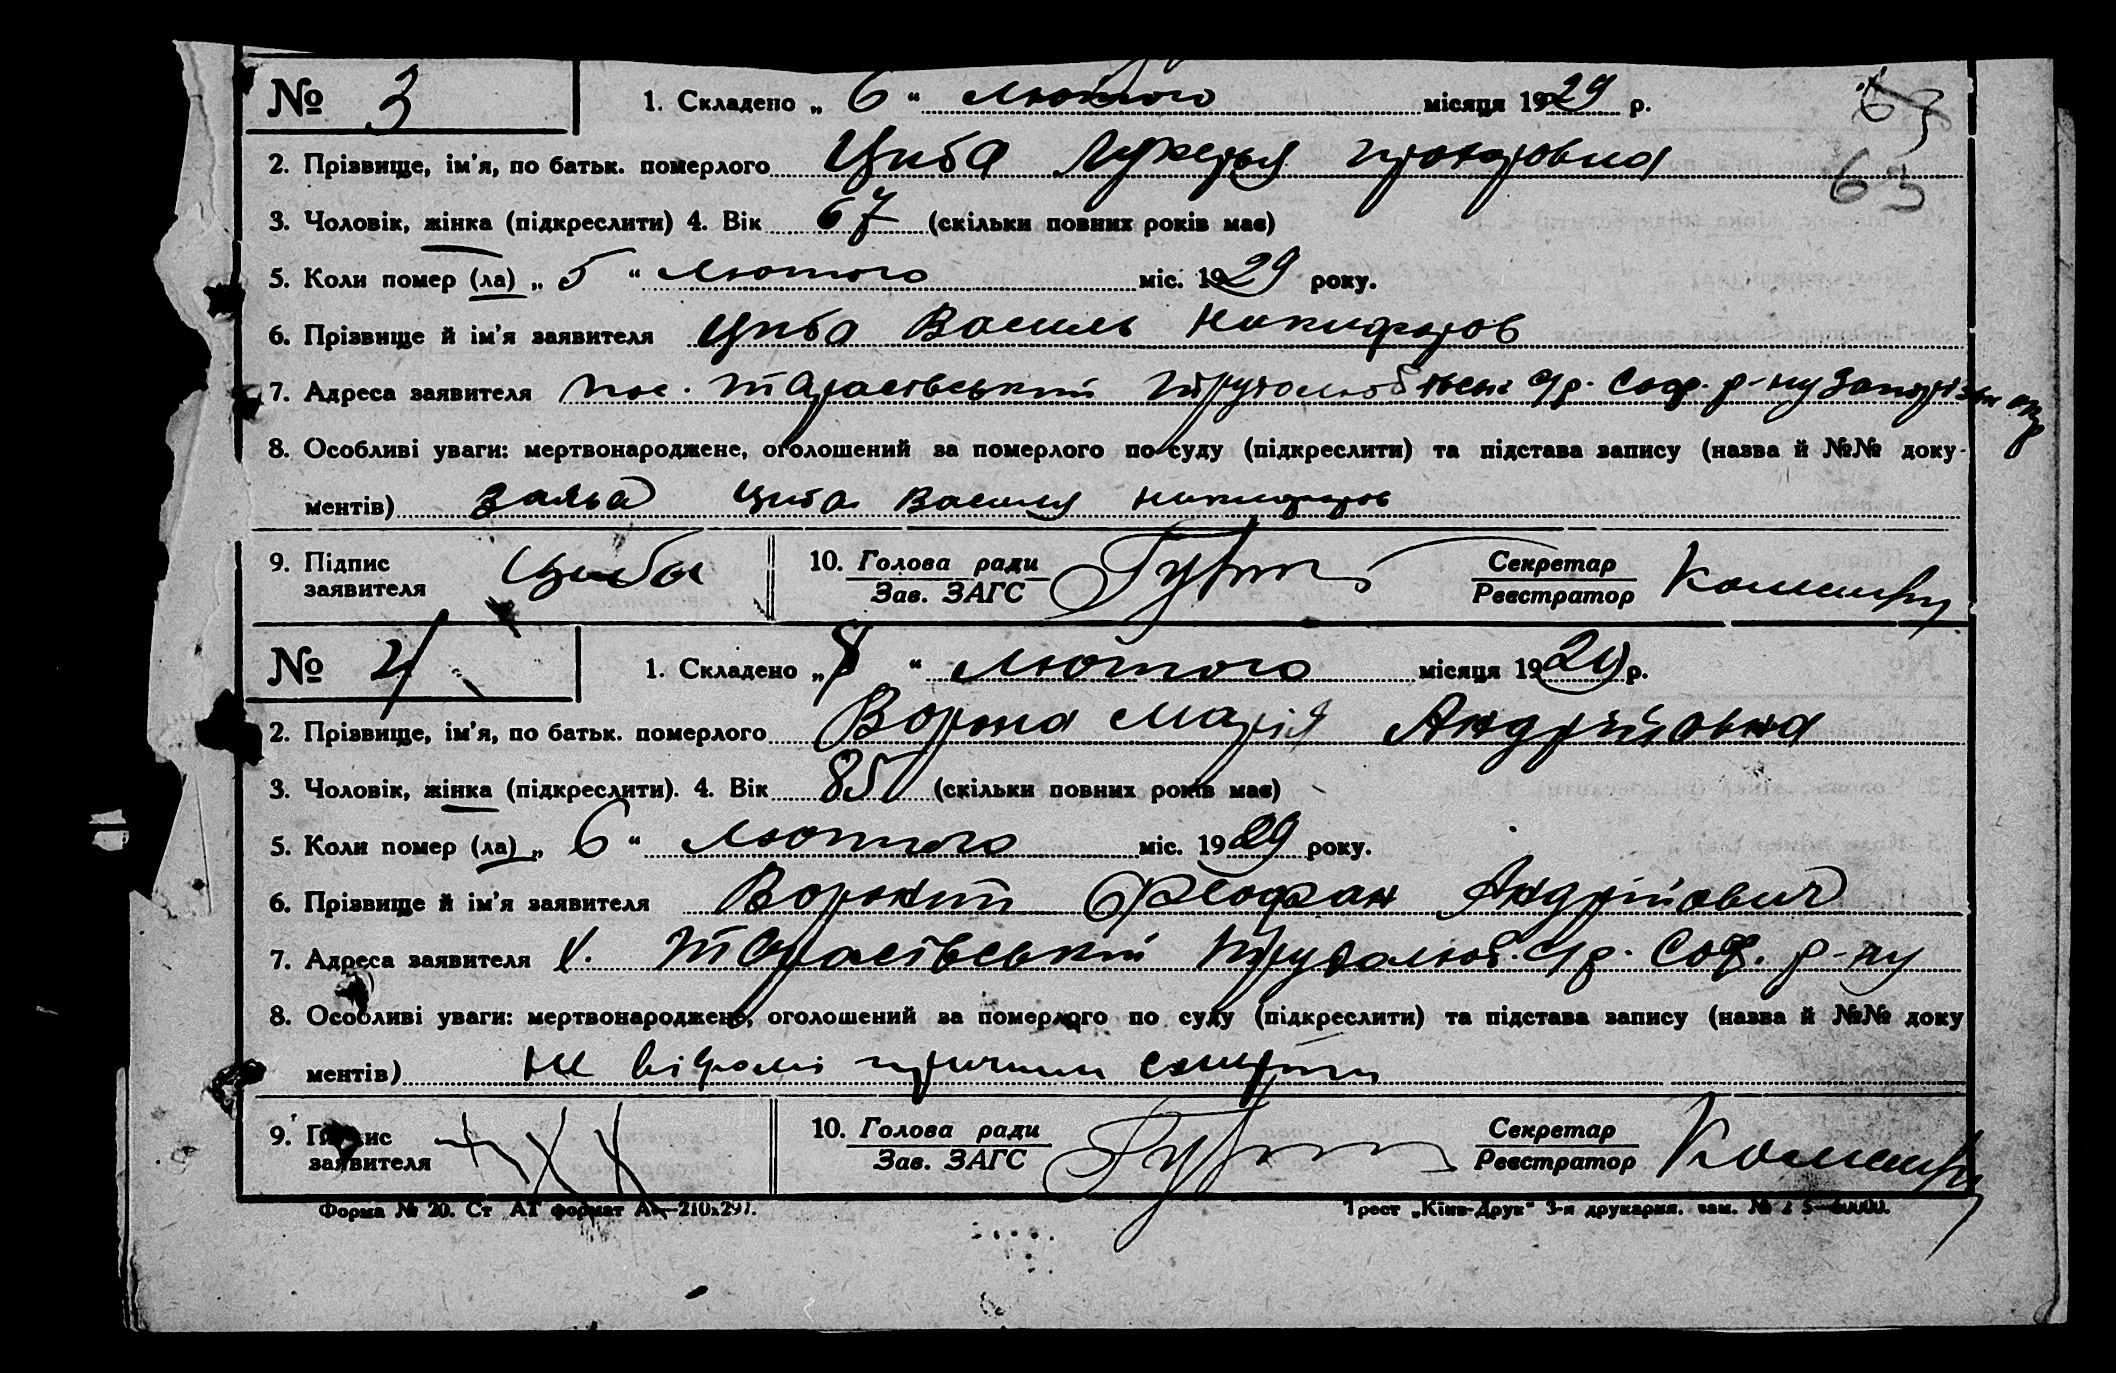 № 3 1. Складено „ 6 “ лютого місяця 1929 р. 63
2. Прізвище, ім'я, по батьк. померлого Циба
63
3. Чоловік, жінка (підкреслити) 4. Вік 67 (скільки повних років має)
5. Коли помер (ла) „ 5 “ лютого міс. 1929 року.
6. Прізвище й ім'я заявителя Циба Василь Никифоров
7. Адреса заявителя пос. Тарасівський Трудолюб
8. Особливі уваги: мертвонароджене, оголошений за померлого по суду (підкреслити) та підстава запису (назва й №№ доку-
ментів) заява Циба Василя Никифоров
9. Підпис заявителя Циба 10. Голова ради Секретар
Зав. ЗАГС Реєстратор
№ 4 1. Складено „ 8 “ лютого місяця 1929 р.
2. Прізвище, ім'я, по батьк. померлого Марія Андрійовна
3. Чоловік, жінка (підкреслити). 4. Вік 85 (скільки повних років має)
5. Коли помер (ла) „ 6 “ лютого міс. 1929 року.
6. Прізвище й ім'я заявителя Феофан Андрійович
7. Адреса заявителя х. Тарасівський Трудолюб. с/р. Соф. р-ну
8. Особливі уваги: мертвонароджене, оголошений за померлого по суду (підкреслити) та підстава запису (назва й №№ доку
ментів) не відомі причини смерти
9. Підпис заявителя ХХХ 10. Голова ради Секретар
Зав. ЗАГС Реєстратор
Форма № 20. Ст АТ формат А4—210х297. Трест „Київ-Друк“ 3-я друкарня. зам. №